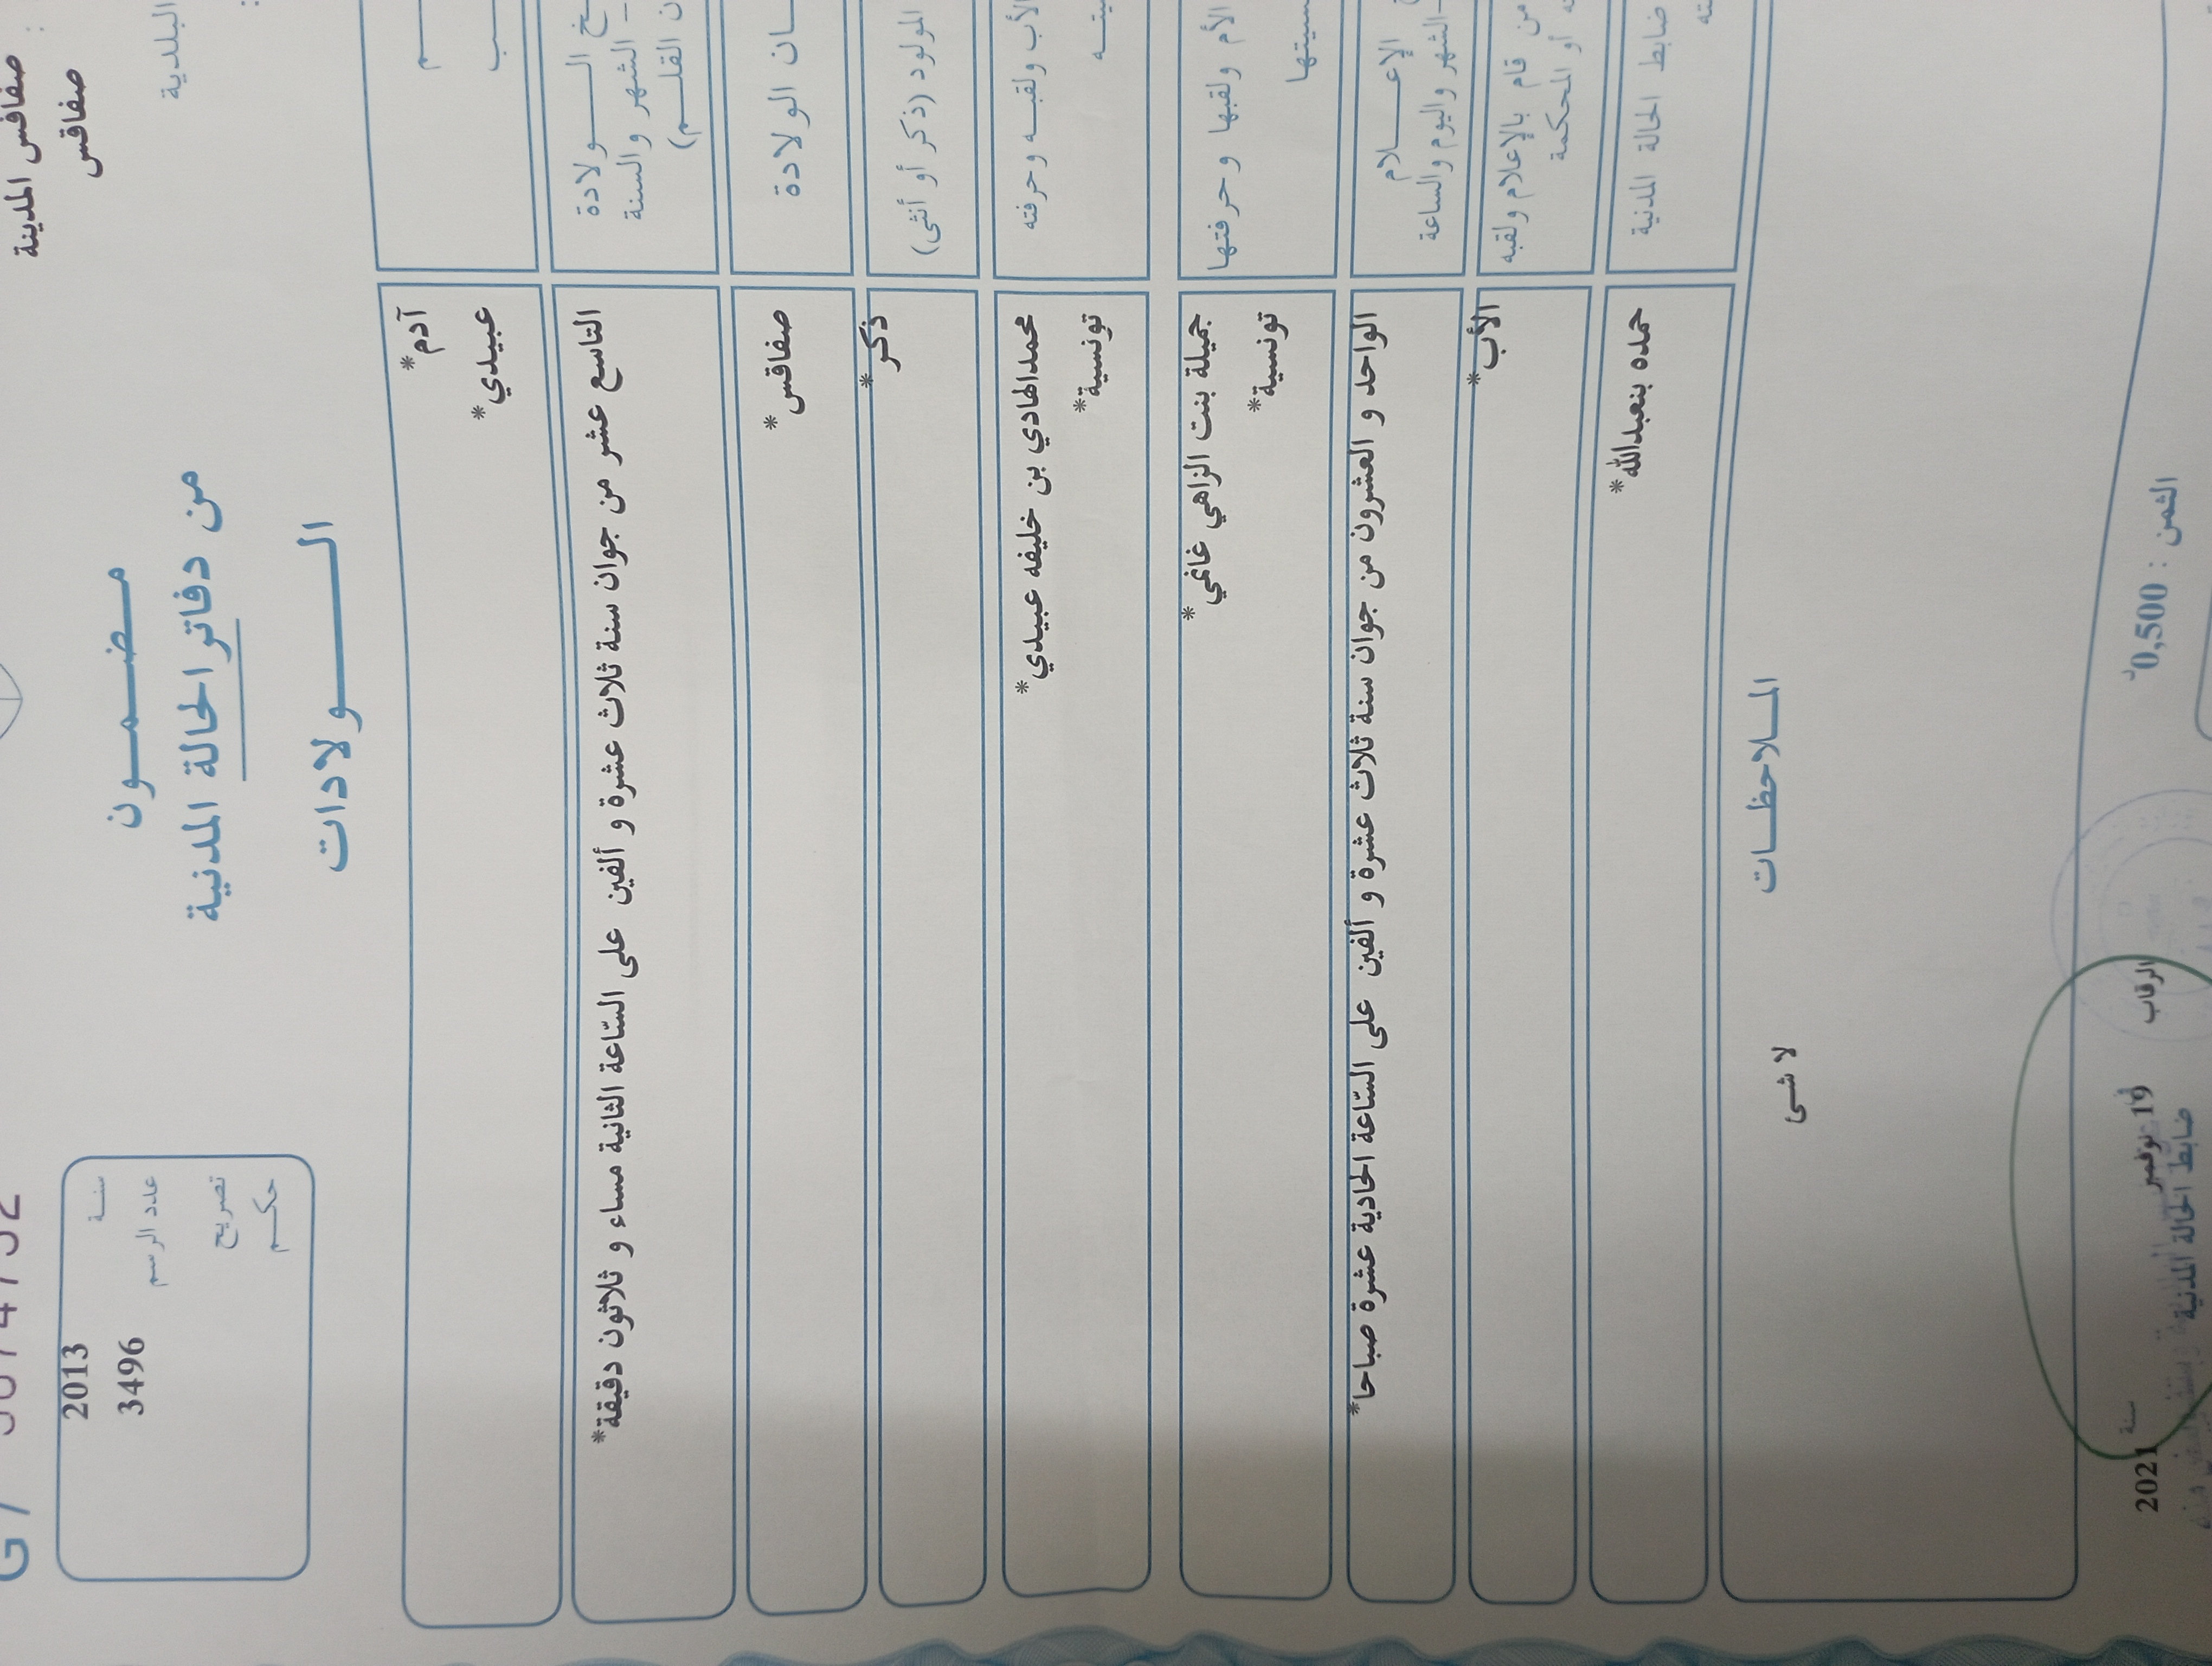 صفاقس المدينة :
صفاقس
البلدية :
مضمون
من دفاتر الحالة المدنية
الولادات
سنة 2013
عدد الرسم 3496
تصريح
حكم
آدم*
عبيدي*
خ الولادة
الشهر والسنة
ن القلم)
التاسع عشر من جوان سنة ثلاث عشرة و ألفين على الساعة الثانية مساء و ثلاثون دقيقة*
ان الولادة
صفاقس*
المولود (ذكر أو أنثى)
ذكر*
الأب ولقبه وحرفته
محمدالهادي بن خليفه عبيدي*
تونسية*
الأم ولقبها وحرفتها
جميلة بنت الزاهي غانمي*
تونسية*
الإعلام
الشهر واليوم والساعة
الواحد و العشرون من جوان سنة ثلاث عشرة و ألفين على الساعة الحادية عشرة صباحا*
من قام بالإعلام ولقبه
أو المحكمة
الأب*
ضابط الحالة المدنية
حمده بنعبدالله*
الملاحظات
لا شئ
الثمن : 0,500د
الرقاب 19 نوفمبر سنة 2021
ضابط الحالة المدنية